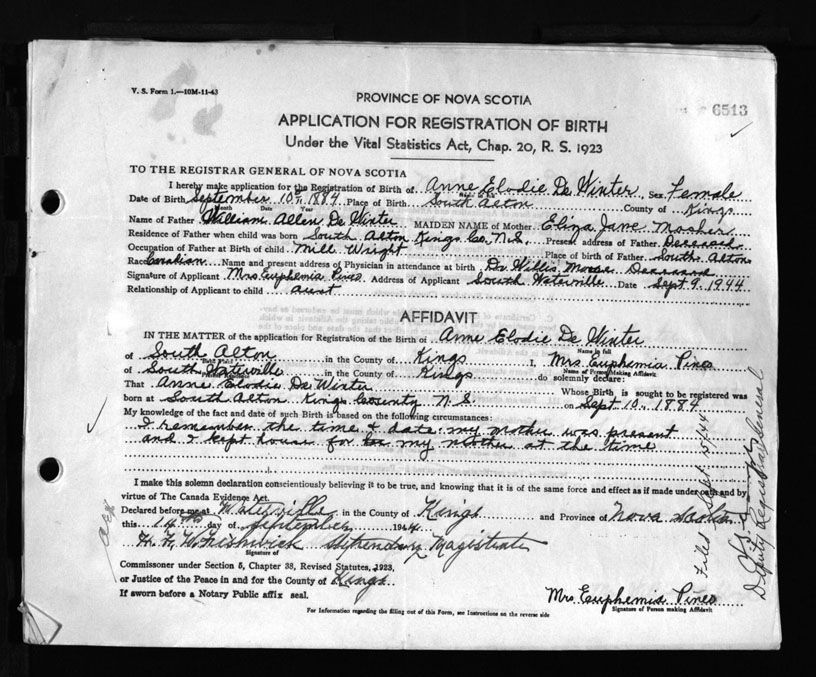 V. S. Form 1.—10M-11-43
PROVINCE OF NOVA SCOTIA
6513
APPLICATION FOR REGISTRATION OF BIRTH
Under the Vital Statistics Act, Chap. 20, R. S. 1923
TO THE REGISTRAR GENERAL OF NOVA SCOTIA
I hereby make application for the Registration of Birth of Anne Elodie De Winter, Sex Female
Date of Birth September 10th 1884 Place of Birth South Alton County of Kings
Month Date Year
Name of Father William Allen De Winter MAIDEN NAME of Mother Eliza Jane Mosher
Residence of Father when child was born South Alton Kings Co. N.S. Present address of Father Deceased
Occupation of Father at Birth of child Mill Wright Place of birth of Father South Alton
Race Canadian Name and present address of Physician in attendance at birth Dr Willis Moore Deceased
Signature of Applicant Mrs Euphemia Pineo Address of Applicant South Waterville Date Sept 9, 1944
Relationship of Applicant to child aunt
AFFIDAVIT
IN THE MATTER of the application for Registration of the Birth of Anne Elodie De Winter
of South Alton in the County of Kings I, Mrs Euphemia Pineo
Name in full
of South Waterville in the County of Kings do solemnly declare:
Name of Person Making Affidavit
That Anne Elodie De Winter Whose Birth is sought to be registered was
born at South Alton Kings County N.S. on Sept 10, 1884
My knowledge of the fact and date of such Birth is based on the following circumstances:
I remember the time & date. my mother was present
and I kept house for my mother at the time
I make this solemn declaration conscientiously believing it to be true, and knowing that it is of the same force and effect as if made under oath and by
virtue of The Canada Evidence Act.
Declared before me at Waterville in the County of Kings and Province of Nova Scotia
this 14th day of September 1944
Stipendiary Magistrate
Signature of
Commissioner under Section 5, Chapter 38, Revised Statutes, 1923,
or Justice of the Peace in and for the County of Kings
If sworn before a Notary Public affix seal.
Mrs Euphemia Pineo
Signature of Person making Affidavit
For Information regarding the filling out of this Form, see Instructions on the reverse side
Filed Sept 15/44
Deputy Registrar General